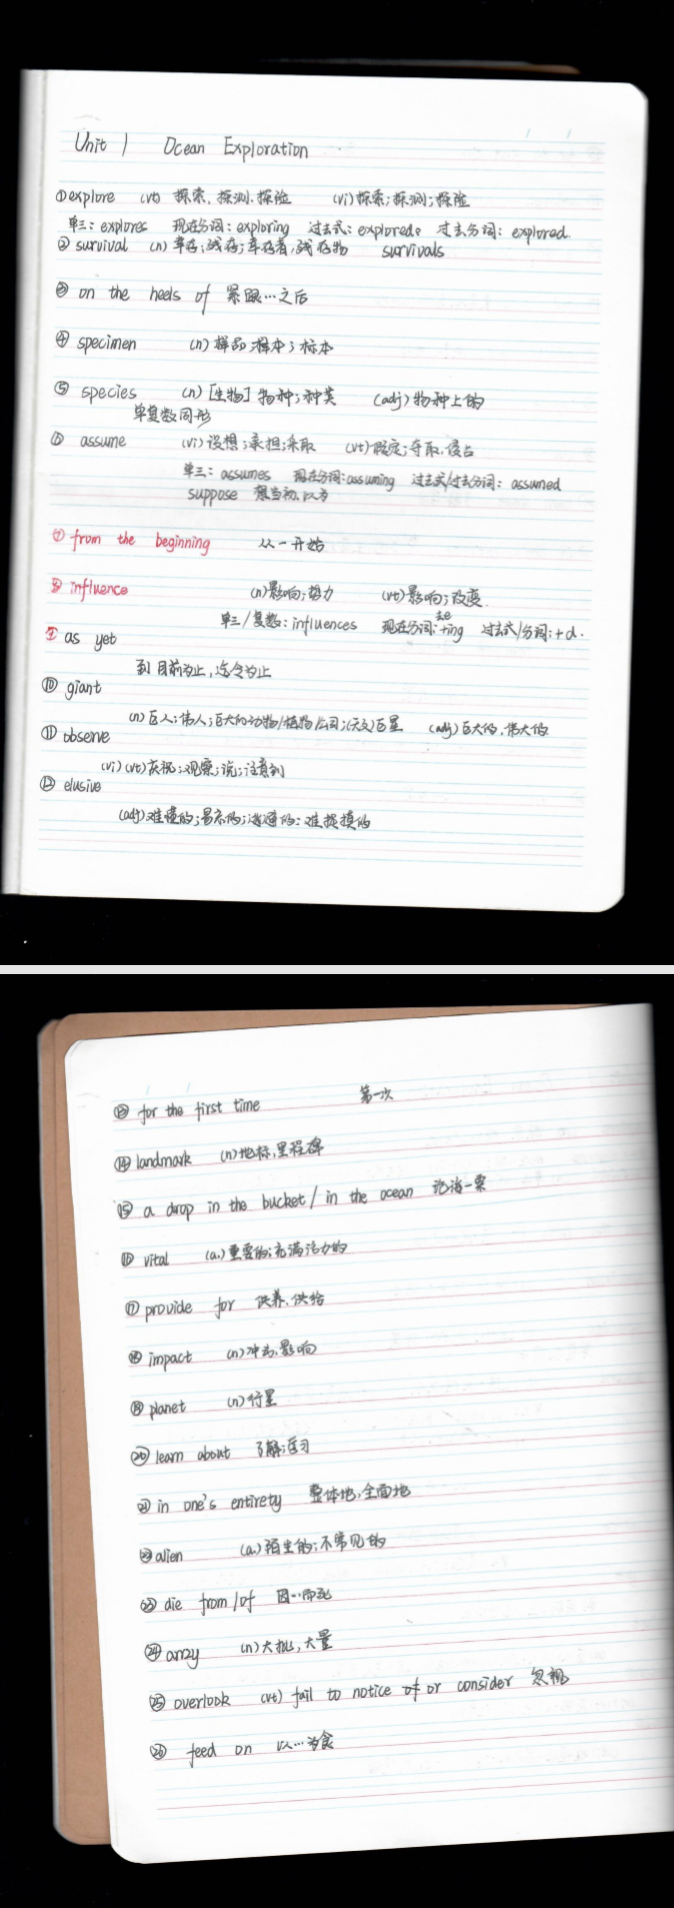 Unit 1 Ocean Exploration
①explore (vt) 探索、探测、探险 (vi)探索;探测;探险
单三: explores 现在分词: exploring 过去式: explored。 过去分词: explored.
② survival (n) 幸存;残存;幸存者,残存物 survivals
③ on the heels of 紧跟…之后
④ specimen (n)样品;样本;标本
⑤ species (n) [生物] 物种;种类 (adj)物种上的
单复数同形
⑥ assume (vi)设想;承担;采取 (vt)假定;夺取、侵占
单三: assumes 现在分词:assuming 过去式/过去分词: assumed
suppose 想当初、以为
⑦ from the beginning 从一开始
⑧ influence (n)影响;势力 (vt)影响;改变.
单三/复数: influences 现在分词:去e+ing 过去式/分词:+d.
⑨ as yet
到目前为止,迄今为止
⑩ giant
(n)巨人;伟人;巨大的动物/植物/公司;(天文)巨星 (adj)巨大的、伟大的
⑪ observe
(vi)(vt)庆祝;观察;说;注意到
⑫ elusive
(adj)难懂的;易忘的;逃避的;难捉摸的
⑬ for the first time 第一次
⑭ landmark (n)地标,里程碑
⑮ a drop in the bucket / in the ocean 沧海一粟
⑯ vital (a.)重要的;充满活力的
⑰ provide for 供养、供给
⑱ impact (n)冲击、影响
⑲ planet (n)行星
⑳ learn about 了解;学习
㉑ in one's entirety 整体地,全面地
㉒ alien (a.)陌生的;不常见的
㉓ die from/of 因…而死
㉔ array (n)大批,大量
㉕ overlook (vt) fail to notice or consider 忽视
㉖ feed on 以…为食